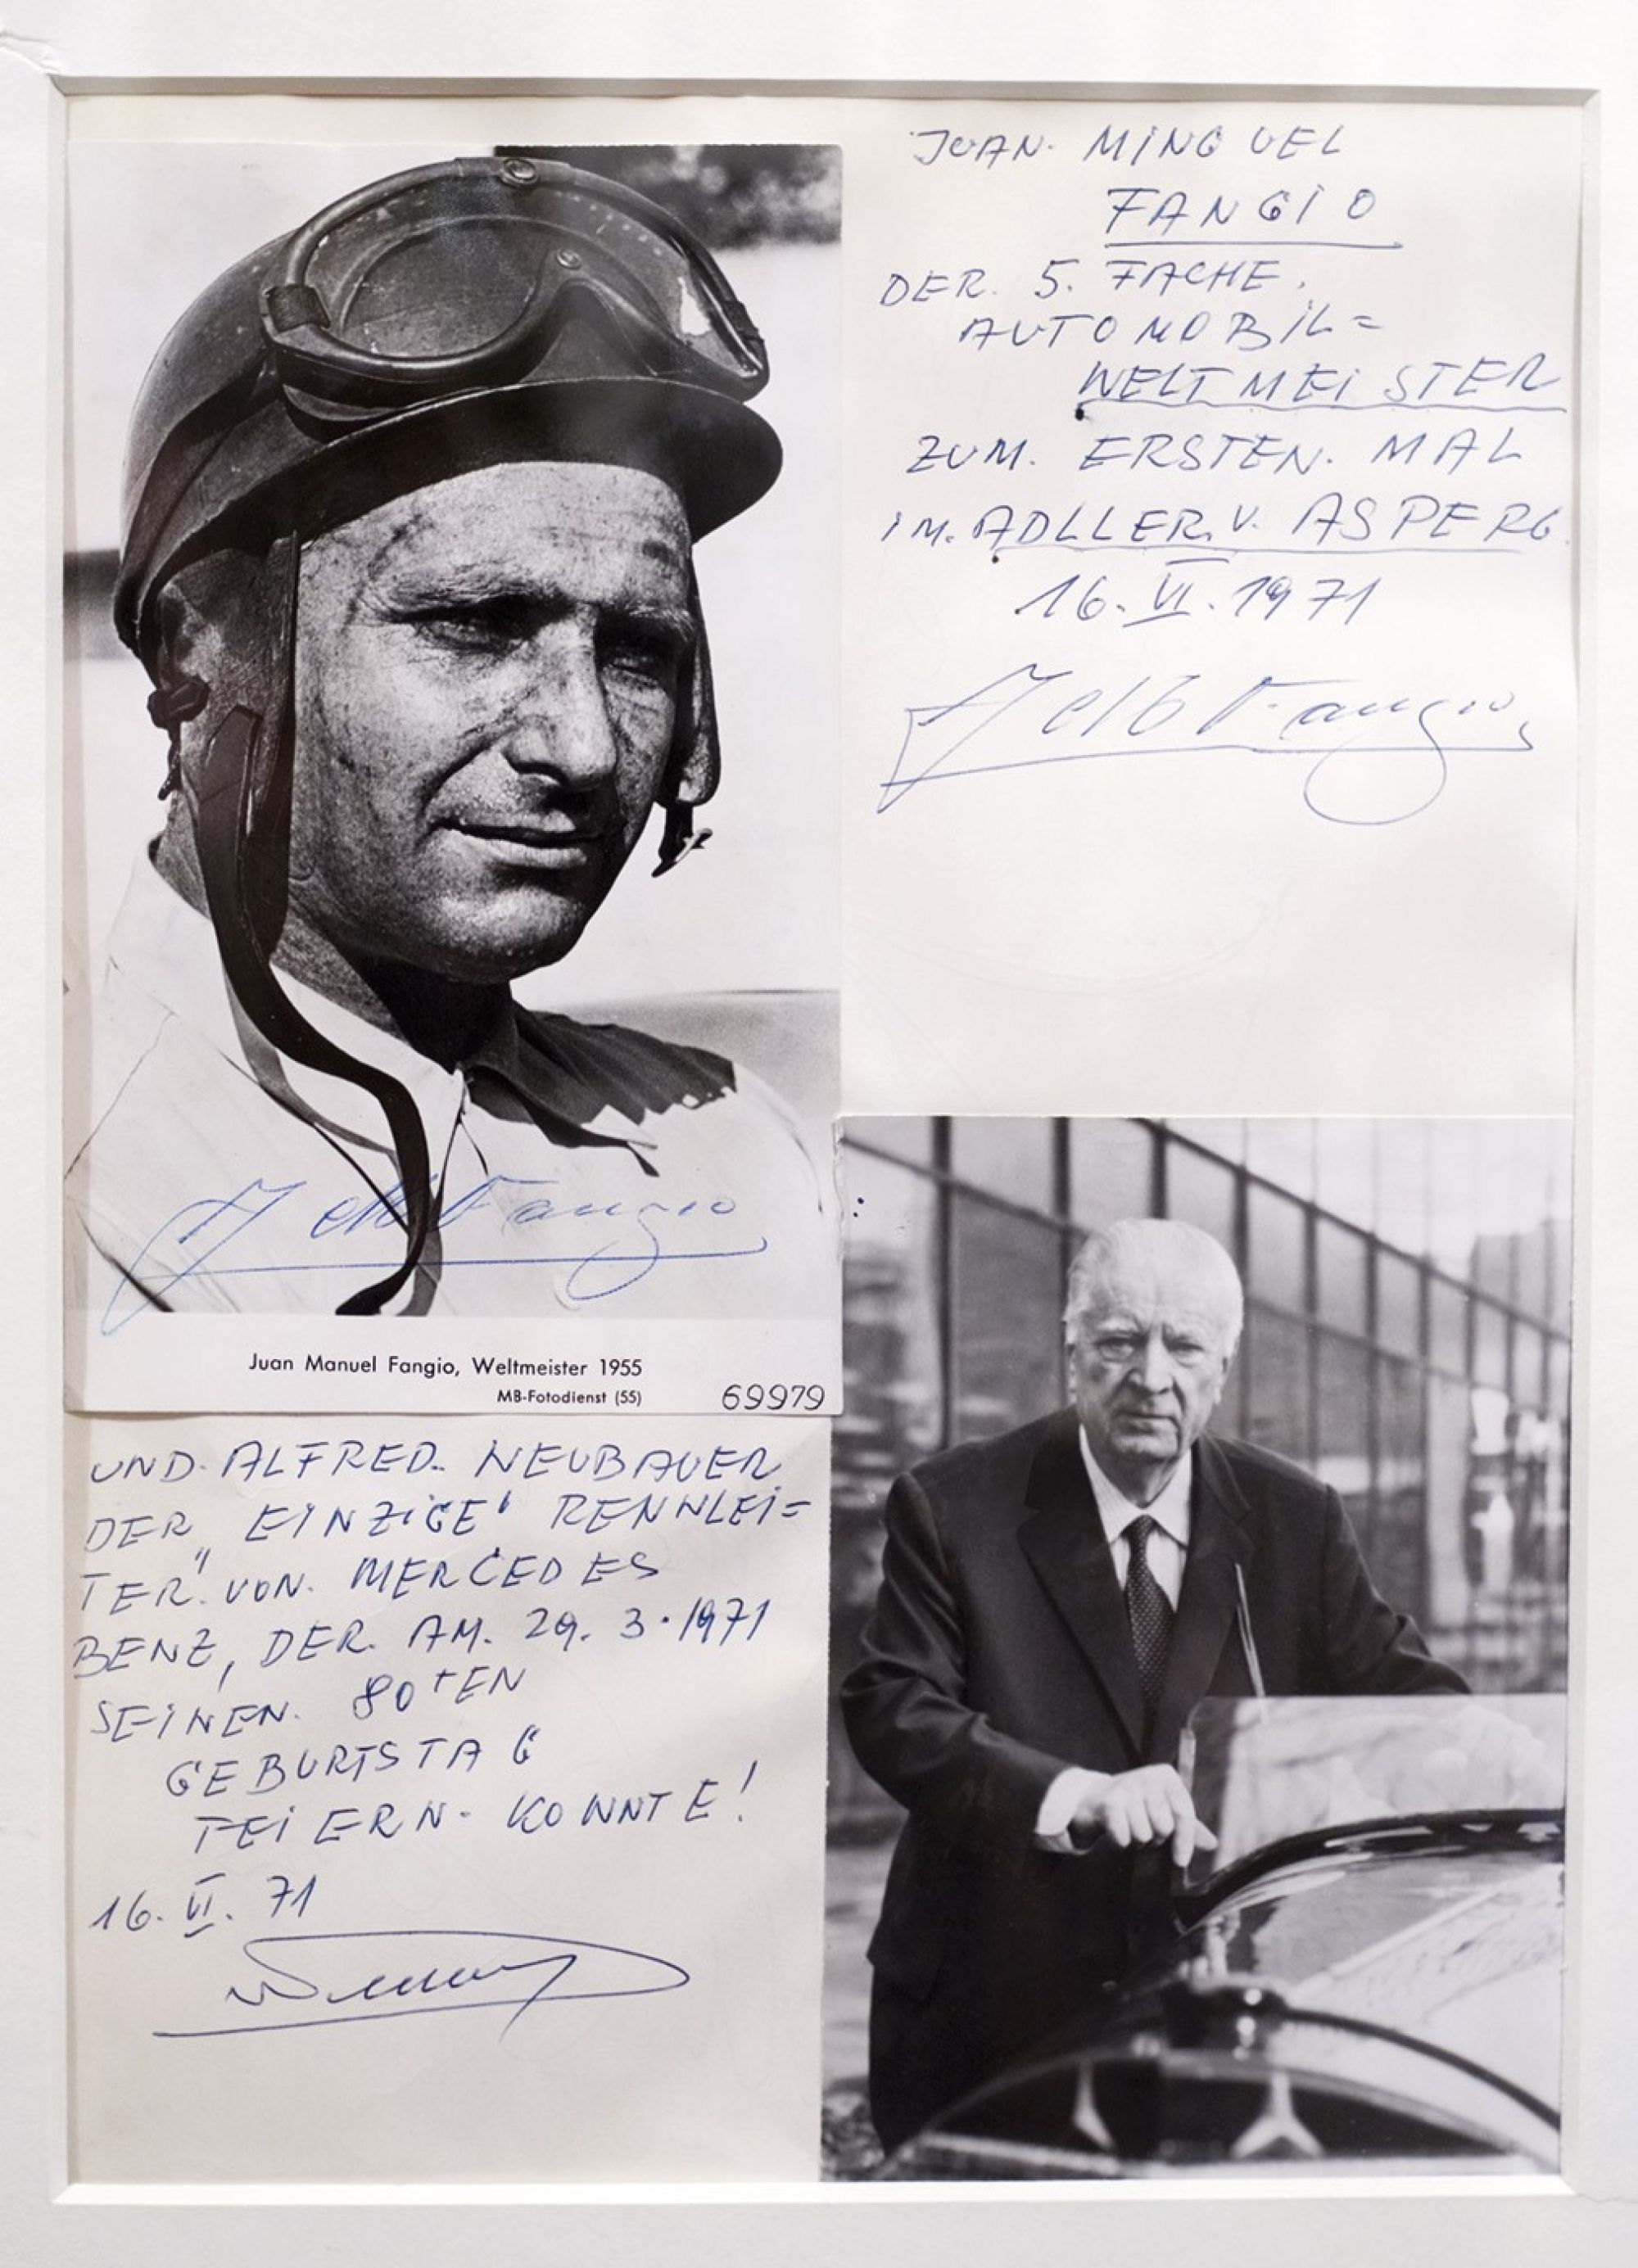 JUAN. MINGUEL
FANGIO
DER. 5. FACHE.
AUTOMOBIL=
WELTMEISTER
ZUM. ERSTEN. MAL
IM. ADLLER. V. ASPERG.
16. VI. 1971
Fangio
Fangio
Juan Manuel Fangio, Weltmeister 1955
MB-Fotodienst (55)
69979
UND. ALFRED. NEUBAUER
DER „EINZIGE" RENNLEI=
TER" VON. MERCEDES
BENZ, DER. AM. 29. 3. 1971
SEINEN. 80TEN
GEBURTSTAG
FEIERN. KONNTE!
16. VI. 71